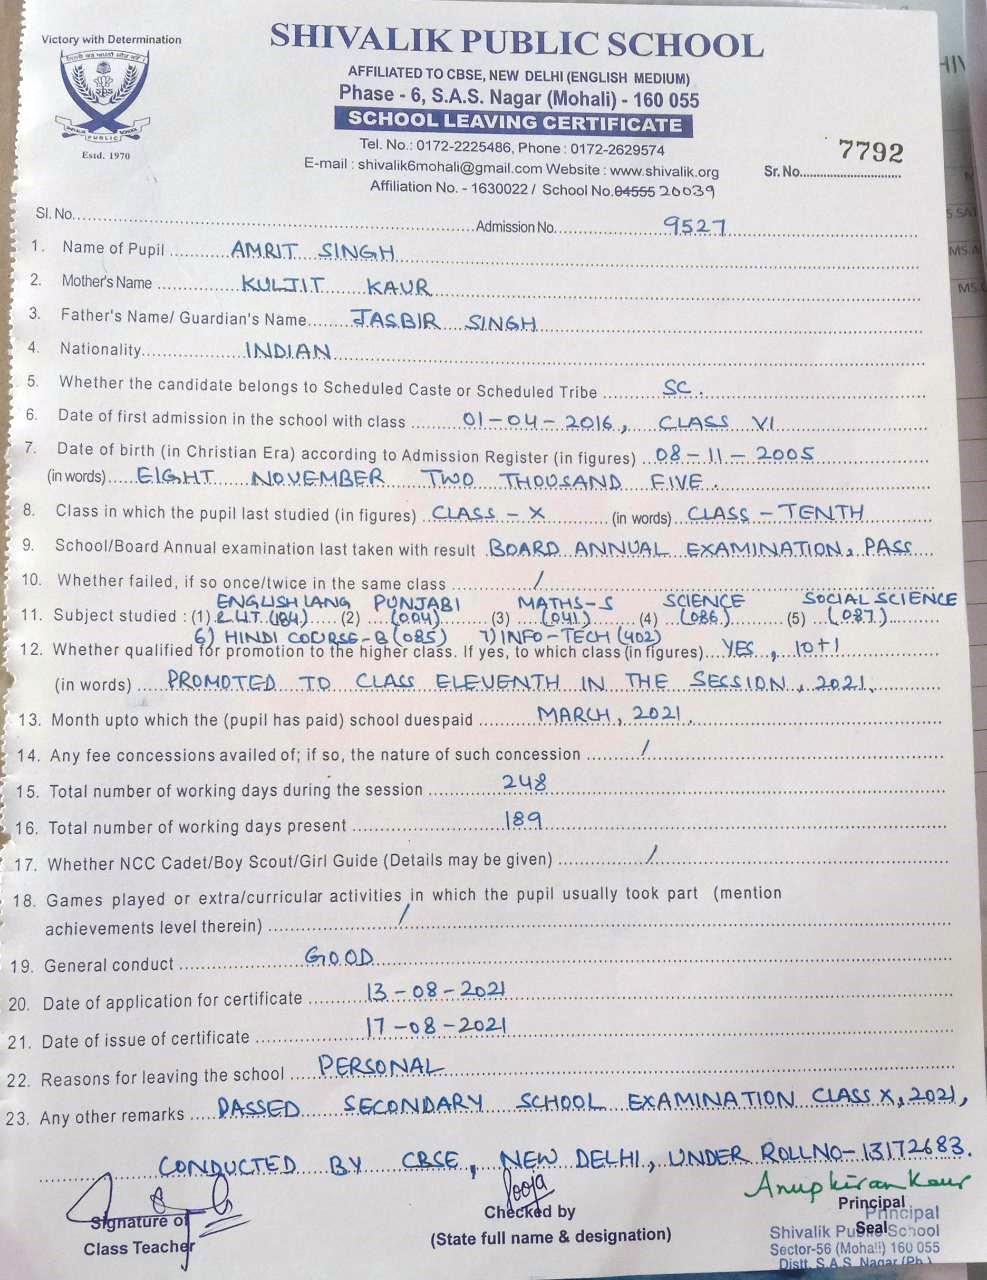 Victory with Determination
SHIVALIK PUBLIC SCHOOL
AFFILIATED TO CBSE, NEW DELHI (ENGLISH MEDIUM)
Phase - 6, S.A.S. Nagar (Mohali) - 160 055
SCHOOL LEAVING CERTIFICATE
SHIVALIK PUBLIC SCHOOL
Estd. 1970
Tel. No.: 0172-2225486, Phone : 0172-2629574
E-mail : shivalik6mohali@gmail.com Website : www.shivalik.org
Affiliation No. - 1630022 / School No. 04555 20039
7792
Sr. No.
Sl. No. Admission No. 9527
1. Name of Pupil AMRIT SINGH
2. Mother's Name KULJIT KAUR
3. Father's Name/ Guardian's Name JASBIR SINGH
4. Nationality INDIAN
5. Whether the candidate belongs to Scheduled Caste or Scheduled Tribe SC.
6. Date of first admission in the school with class 01-04-2016, CLASS VI
7. Date of birth (in Christian Era) according to Admission Register (in figures) 08-11-2005
(in words) EIGHT NOVEMBER TWO THOUSAND FIVE.
8. Class in which the pupil last studied (in figures) CLASS - X (in words) CLASS - TENTH
9. School/Board Annual examination last taken with result BOARD ANNUAL EXAMINATION, PASS
10. Whether failed, if so once/twice in the same class /
ENGLISH LANG PUNJABI MATHS-S SCIENCE SOCIAL SCIENCE
11. Subject studied : (1) & LIT. (184) (2) (004) (3) (041) (4) (086) (5) (087)
6) HINDI COURSE-B (085) 7) INFO-TECH (402)
12. Whether qualified for promotion to the higher class. If yes, to which class (in figures) YES, 10+1
(in words) PROMOTED TO CLASS ELEVENTH IN THE SESSION, 2021.
13. Month upto which the (pupil has paid) school duespaid MARCH, 2021.
14. Any fee concessions availed of; if so, the nature of such concession /
15. Total number of working days during the session 248
16. Total number of working days present 189
17. Whether NCC Cadet/Boy Scout/Girl Guide (Details may be given) /
18. Games played or extra/curricular activities in which the pupil usually took part (mention
achievements level therein) /
19. General conduct GOOD
20. Date of application for certificate 13-08-2021
21. Date of issue of certificate 17-08-2021
22. Reasons for leaving the school PERSONAL
23. Any other remarks PASSED SECONDARY SCHOOL EXAMINATION CLASS X, 2021,
CONDUCTED BY CBSE, NEW DELHI, UNDER ROLLNO-13172683.
Pooja
Anupkiran Kaur
Signature of
Class Teacher
Checked by
(State full name & designation)
Principal
Seal
Principal
Shivalik Public School
Sector-56 (Mohali) 160 055
Distt. S.A.S. Nagar (Pb.)